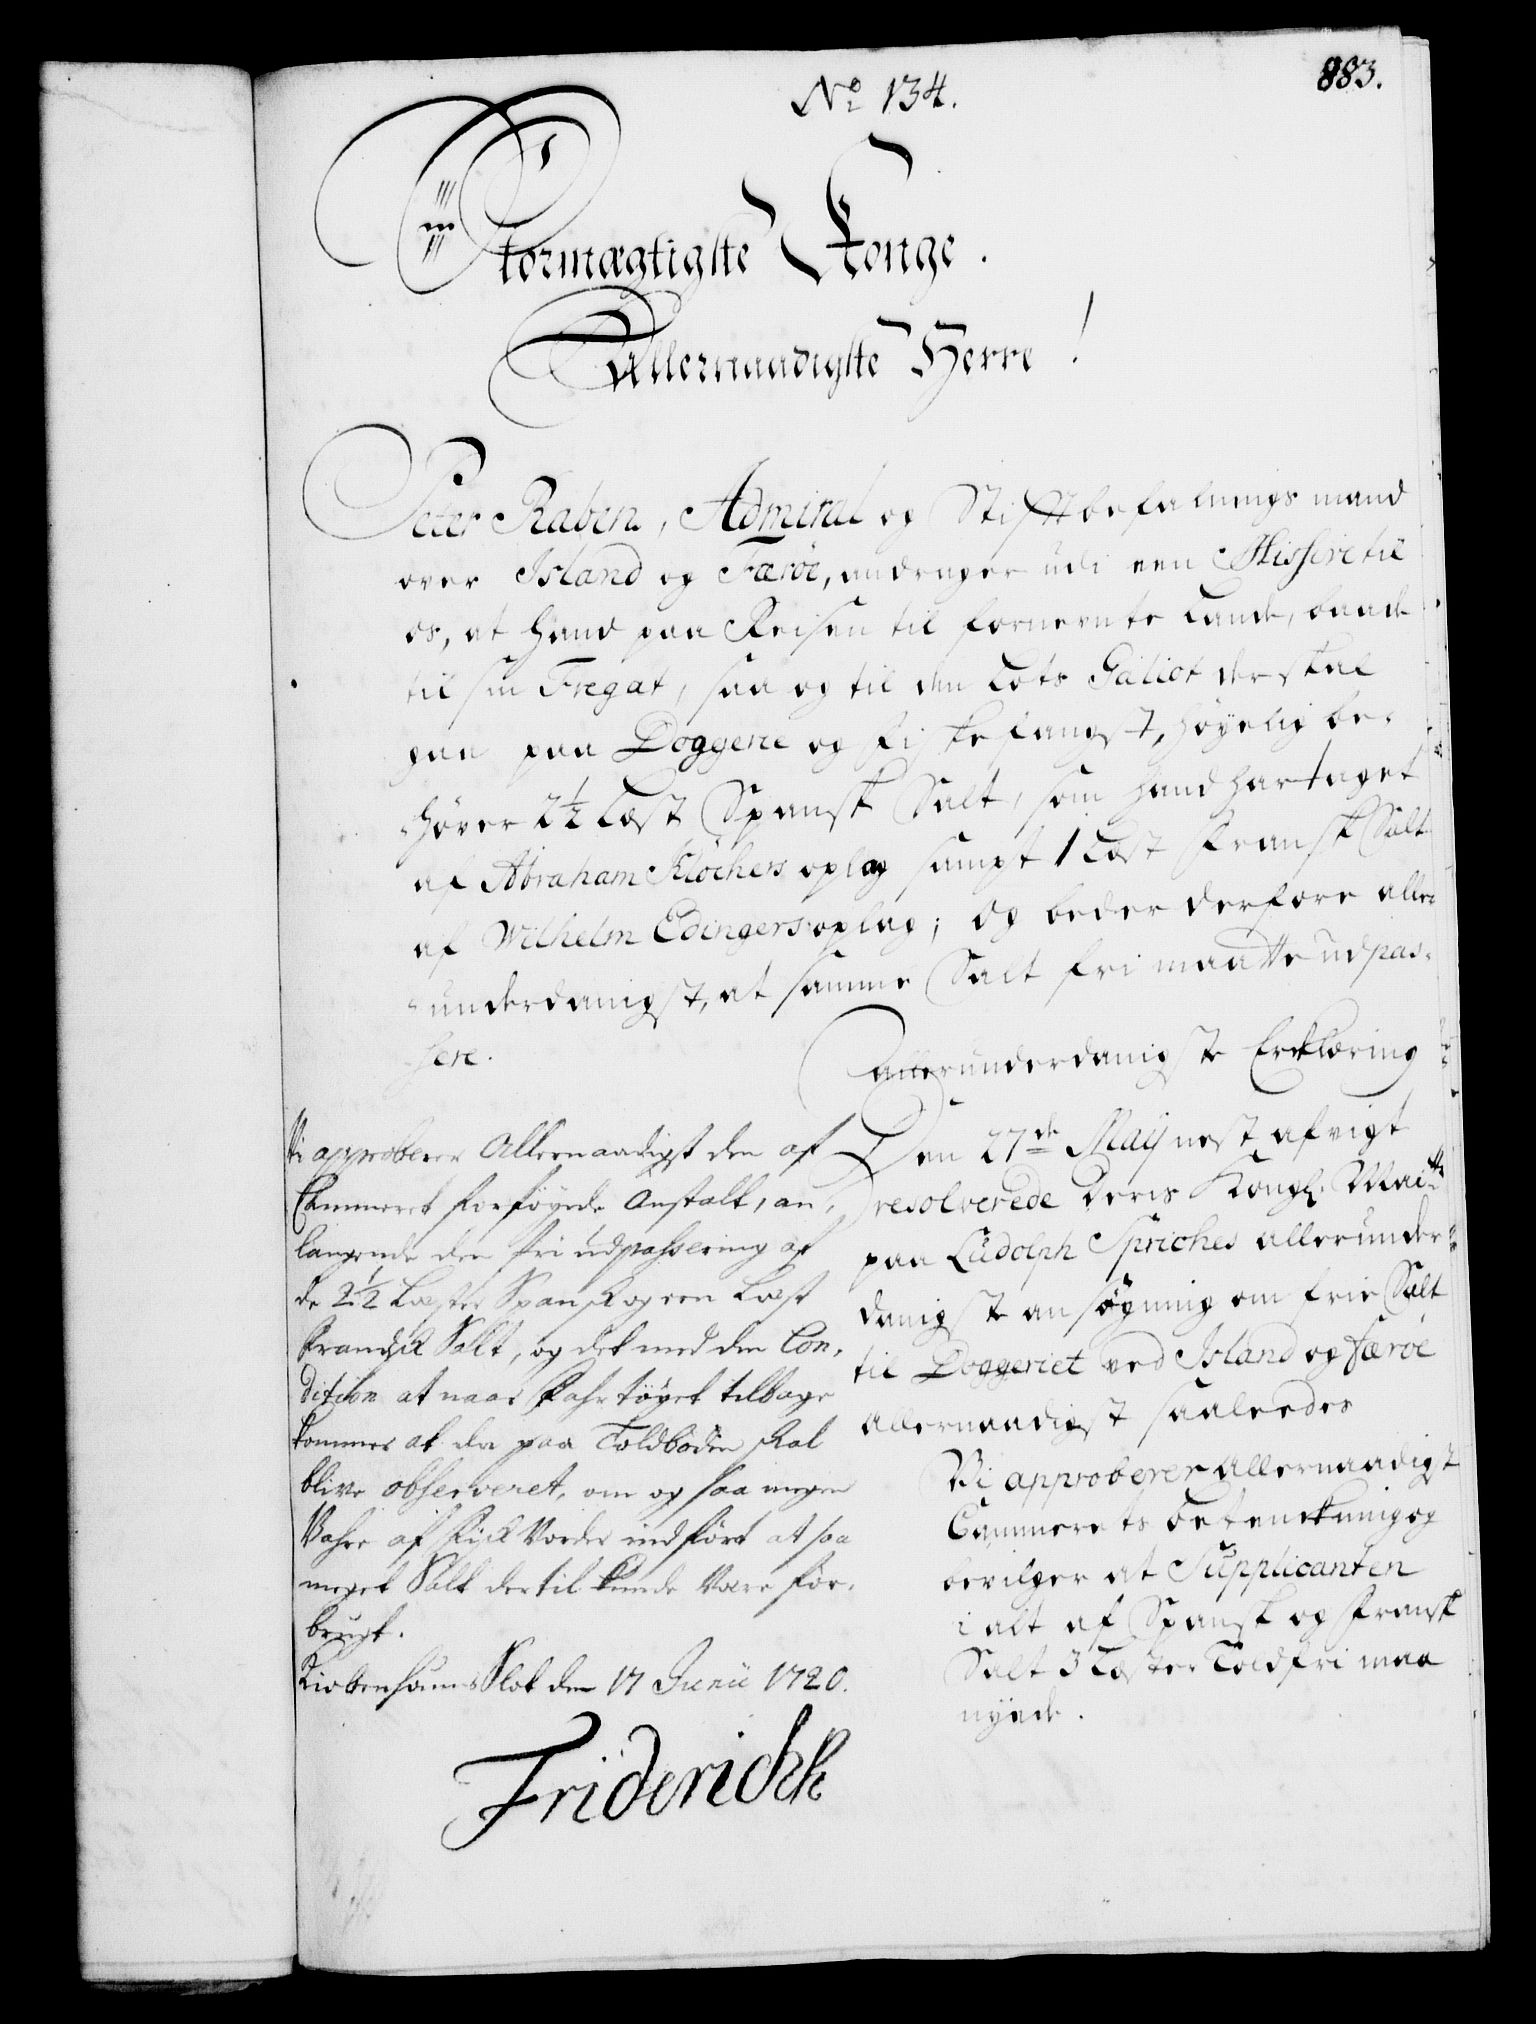 883.
No 134.
Stormægtigste Konge.
Allernaadigste Herre!
Peter Raben, Admiral og Stiftbefalningsmand
over Island og Færöe, andrager udi een Missive til
os, at hand paa Reisen til fornevnte Lande, baade
til sin Fregat, saa og til den Lots Galiot der skal
gaa paa Doggerie og fiskefangst, høyelig be-
høver 2 1/2 Læst Spansk Salt, som hand har taget
af Abraham Klöckers oplag sampt 1 Læst Fransk Salt
af Wilhelm Edingers oplag; og beder derfore aller-
underdanigst, at samme Salt fri maatte udpas-
sere.
Allerunderdanigste Erklæring
Den 27de Maij nest afvigt
resolverede Deris Kongl. Maitts
paa Ludolph Spriches allerunder-
danigste ansøgning om frie Salt
til Doggeriet ved Island og Færöe
allernaadigst saaleedes
Vi approberer allernaadigst
Cammerets betenckning og
bevilger at Supplicanten
i alt af Spansk og Fransk
Salt 3 Læster Toldfri maa
nyede.
Vi approberer Allernaadigst den af
Cammeret forføyede Anstalt, an-
langende den fri udpassering af
de 2 1/2 Læster Spansk og een Læst
Frandsk Salt, og det med den Con-
dition at naar Fahrtøyet tilbage
kommer at der paa Toldboden skal
blive observeret, om og saa megen
Vahre af Fisk Vorder indført at saa
meget Salt dertil kunde Være for-
brugt.
Kiøbenhauns Slot den 17 Junii 1720.
Friderich R